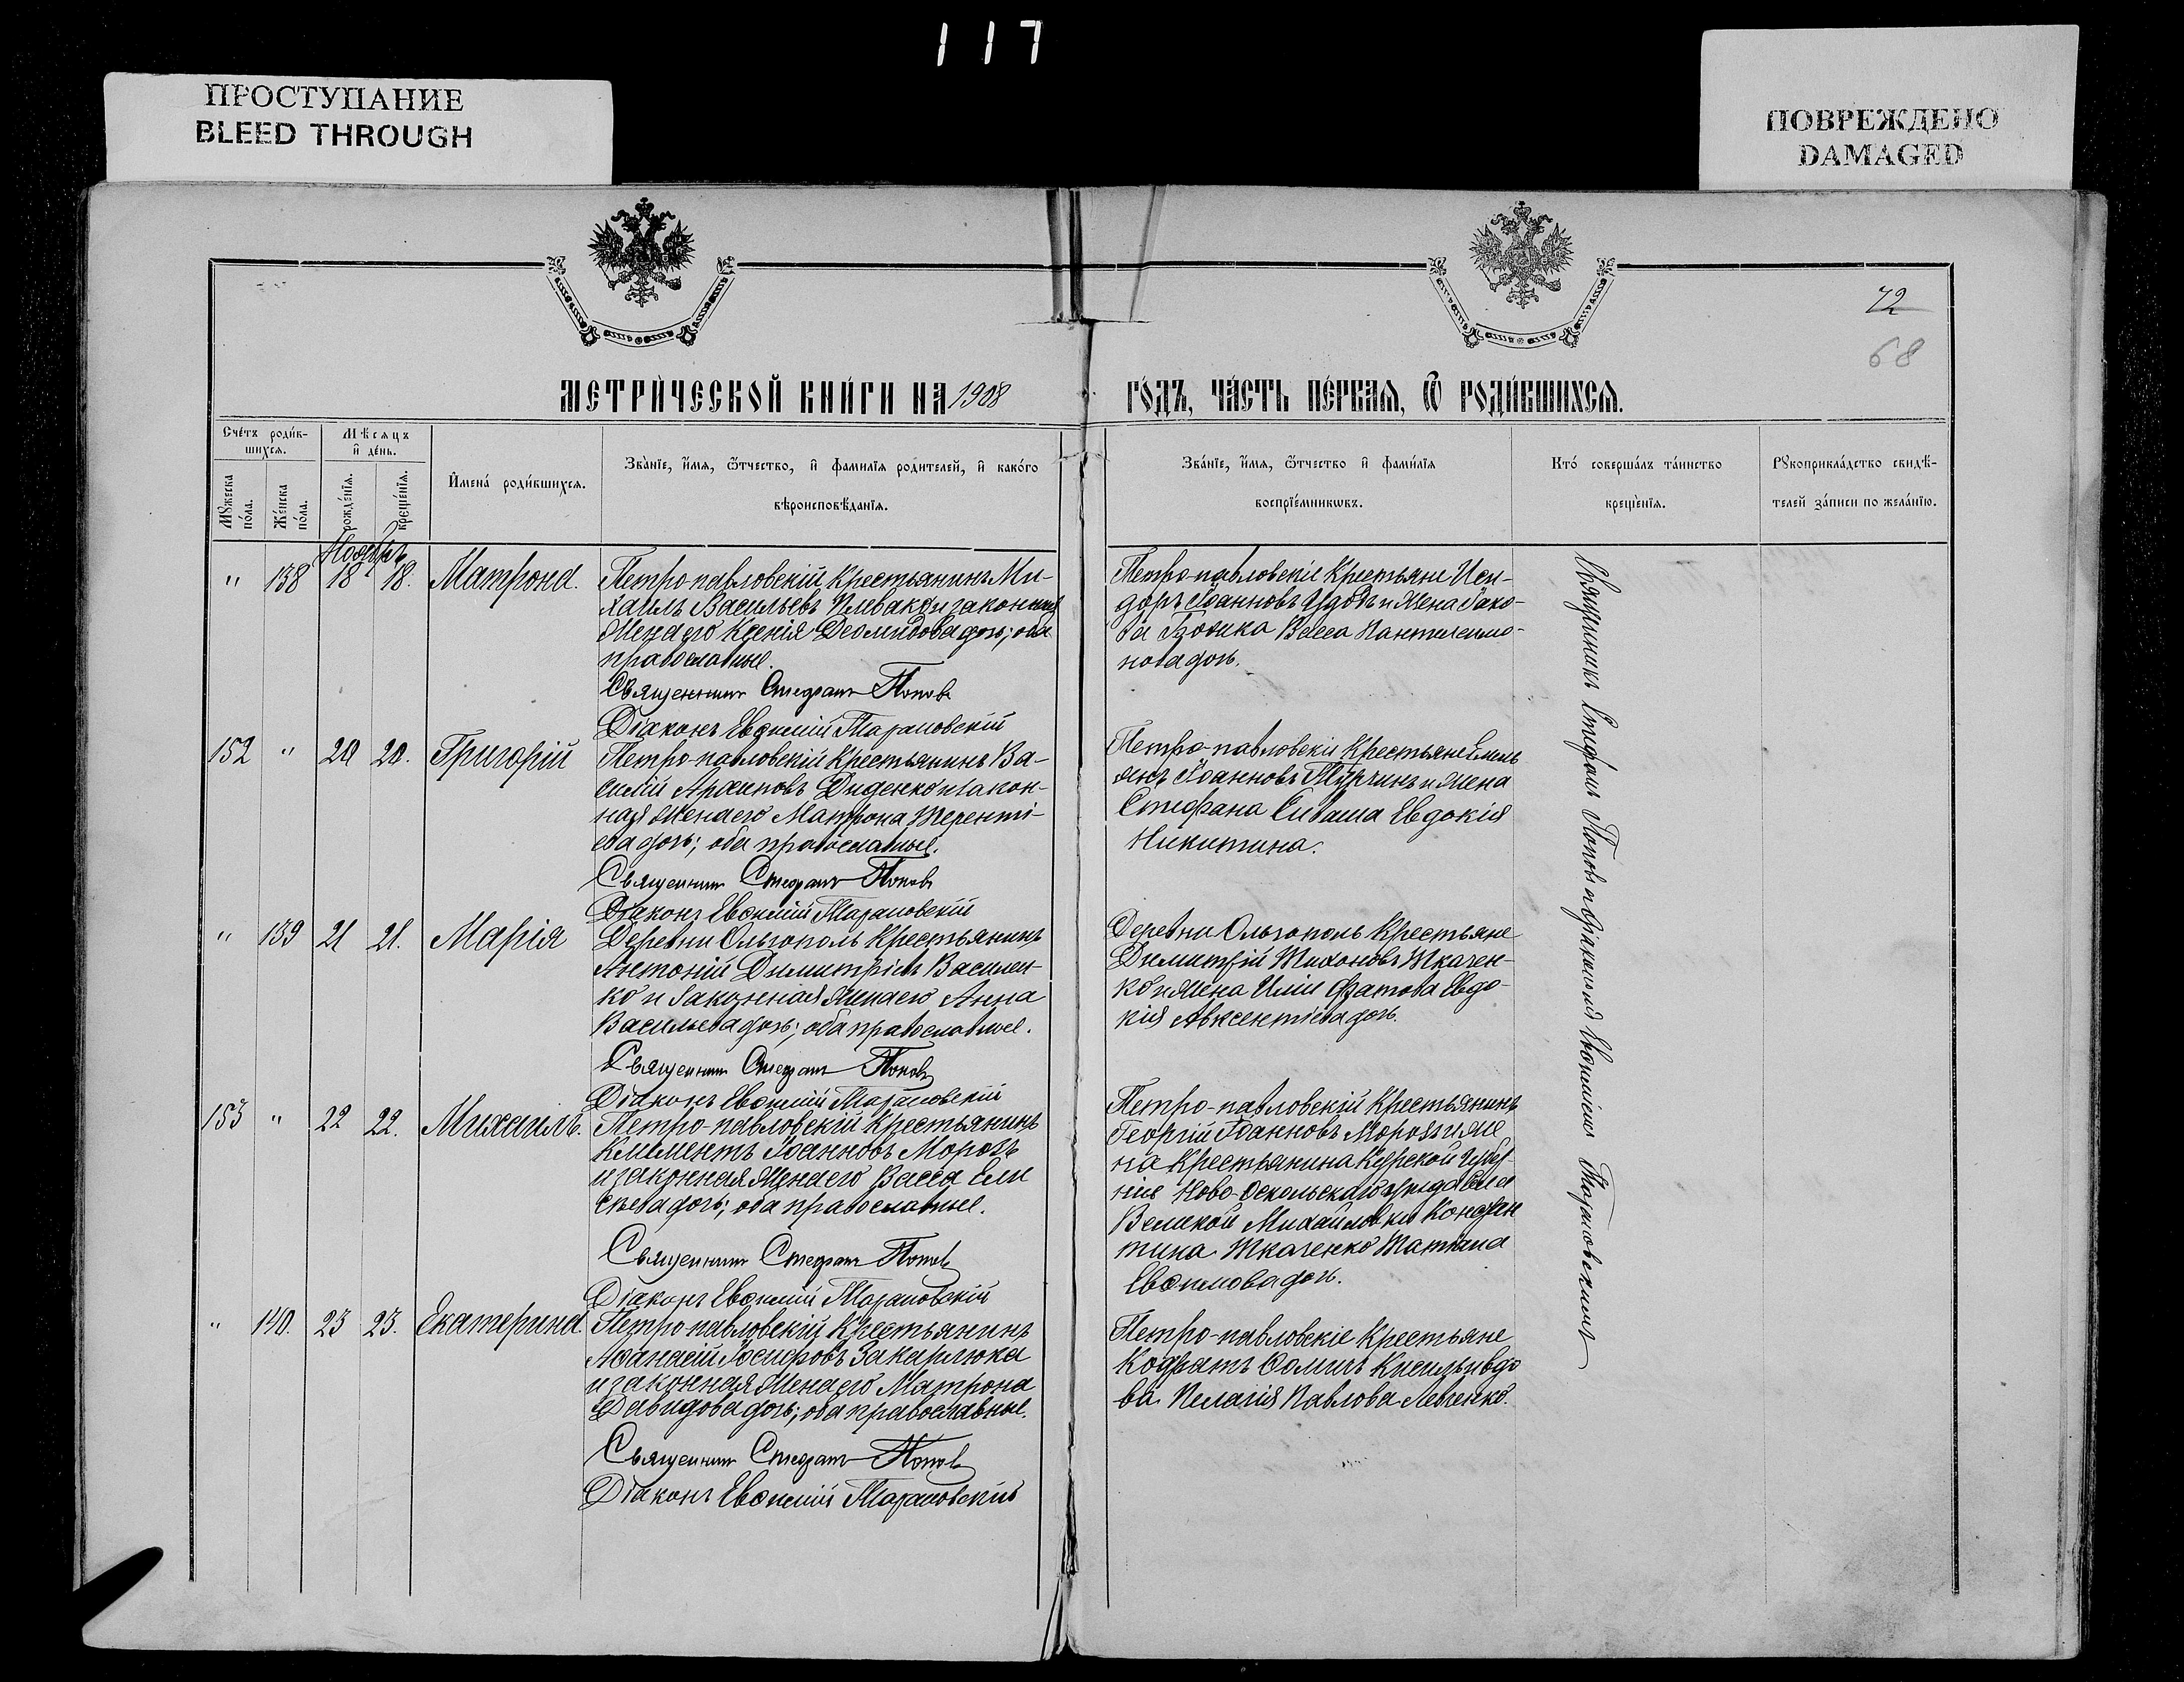 117
ПРОСТУПАНИЕ
BLEED THROUGH
ПОВРЕЖДЕНО
DAMAGED
72
68
МЕТРИ́ЧЕСКОЙ КНИ́ГИ НА 1908
ГО́ДЪ, ЧА́СТЬ ПЕ́РВАЯ, Ѿ РОДИ́ВШИХСЯ.
Сче́тъ роди́в-
шихся.
Мѣсяцъ
и де́нь.
Мꙋжеска
по́ла.
Же́нска
по́ла.
рожде́нїя.
креще́нїя.
Имена́ роди́вшихся.
Зва́нїе, и́мя, ѻ́тчество, и фамилїя родителей, и како́го
вѣроисповѣ́данїя.
Зва́нїе, и́мя, ѻ́тчество и фами́лїя
воспрїе́мникѡвъ.
Кто́ соверша́лъ та́инство
креще́нїя.
Рꙋкоприкла́дство свидѣ́-
телей за́писи по жела́нїю.
Ноябрь
" 138 18 18. Матрона.
Петро-павловскій крестьянинъ Ми-
хаилъ Васильевъ Плевако и законная
жена его Ксенія Деомидова дочь; оба
православные.
Священникъ Стефанъ Поповъ
Діаконъ Евѳимій Тарановскій
Петро-павловскіе крестьяне Иси-
доръ Іоанновъ Удодъ и жена Іако-
ва Васса Пантелеимо-
нова дочь.
152 " 20 20. Григорій
Петро-павловскій крестьянинъ Ва-
силій Архиповъ Диденко и закон-
ная жена его Матрона Теренті-
ева дочь; оба православные.
Священникъ Стефанъ Поповъ
Діаконъ Евѳимій Тарановскій
Петро-павловскіе крестьяне Емель
янъ Іоанновъ Турчинъ и жена
Стефана Сиваша Евдокія
Никитина.
" 139 21 21. Марія
Деревни Ольгополь крестьянинъ
Антоній Димитріевъ Василен-
ко и законная жена его Анна
Васильева дочь; оба православные.
Священникъ Стефанъ Поповъ
Діаконъ Евѳимій Тарановскій
Деревни Ольгополь крестьяне
Димитрій Тихоновъ Ткачен-
ко и жена Иліи Евдо-
кія Авксентіева дочь.
153 " 22 22. Михаилъ.
Петро-павловскій крестьянинъ
Климентъ Іоанновъ Морозъ
и законная жена его Васса Ели
сѣева дочь; оба православные.
Священникъ Стефанъ Поповъ
Діаконъ Евѳимій Тарановскій
Петро-павловскій крестьянинъ
Георгій Іоанновъ Морозъ и же
на крестьянина Курской губер-
ніи Ново-Оскольскаго уѣзда села
Великой Михайловки
Ткаченко Татіана
Евѳимова дочь.
" 140. 23 23. Екатерина
Петро-павловскій крестьянинъ
Аѳанасій Іосифовъ Закарлюка
и законная жена его Матрона
Давидова дочь; оба православные.
Священникъ Стефанъ Поповъ
Діаконъ Евѳимій Тарановскій
Петро-павловскіе крестьяне
Кодратъ Ѳомичъ Кисиль и вдо
ва Пелагія Павлова Левченко.
Священникъ Стефанъ Поповъ съ діакономъ Евѳиміемъ Тарановскимъ